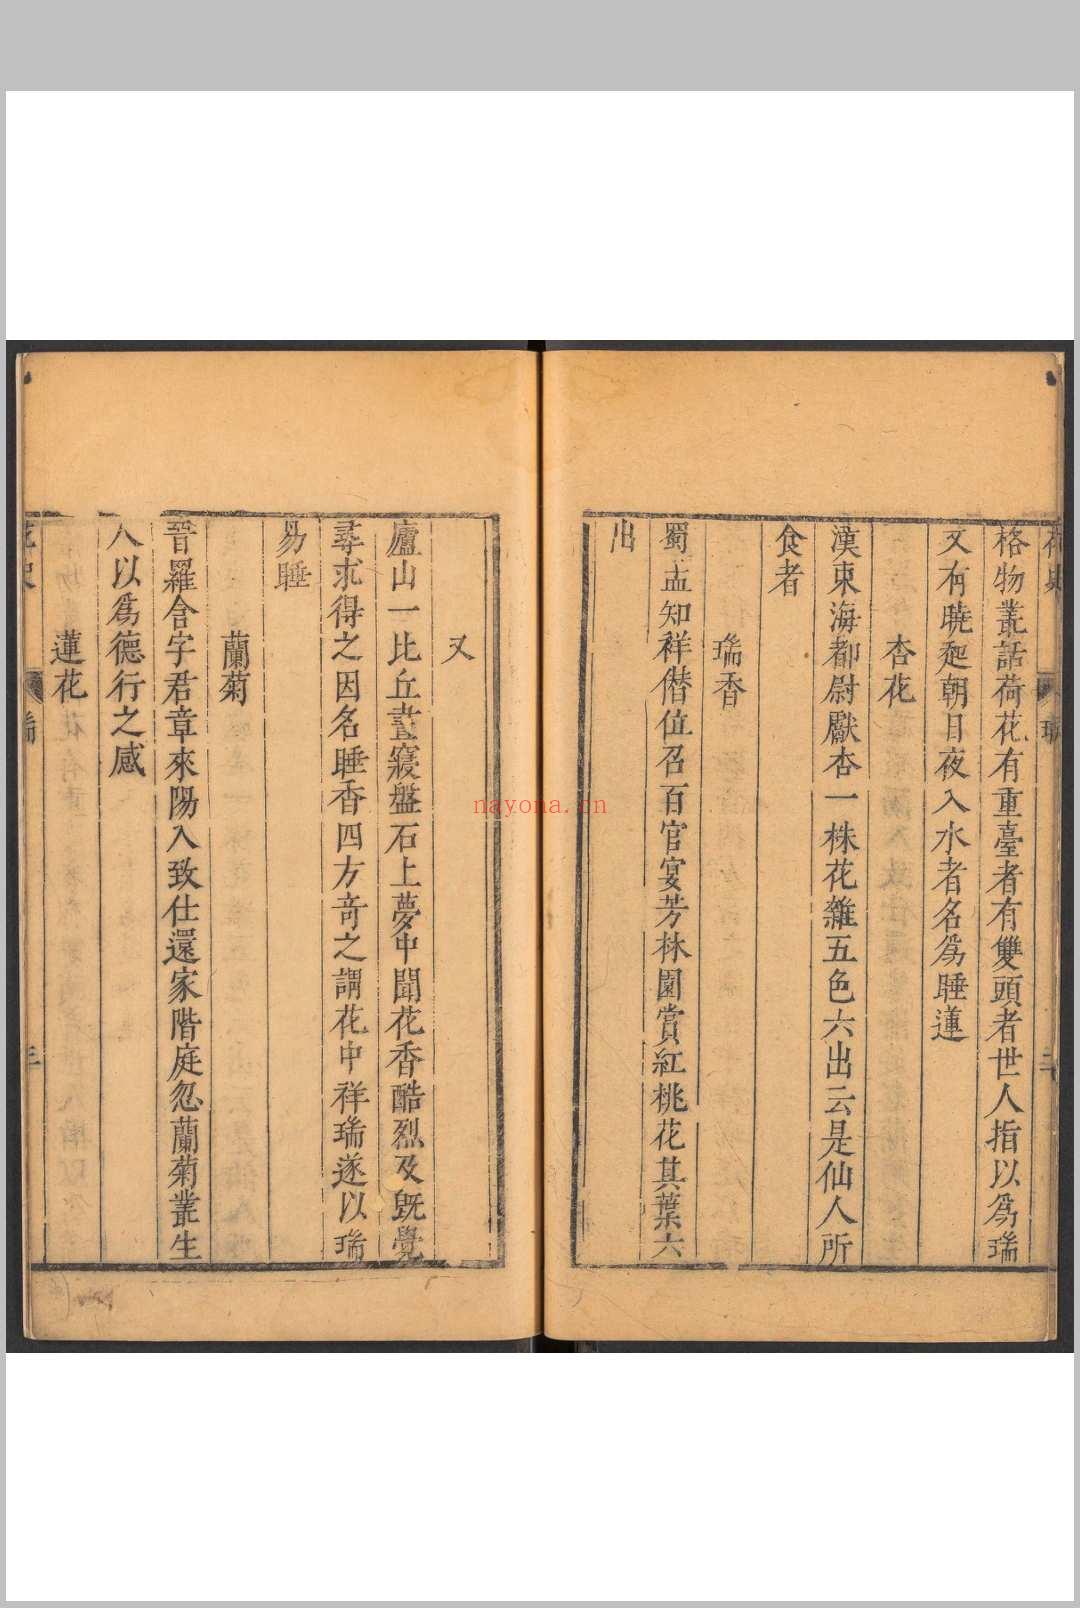 格物叢話荷花有重臺者有雙頭者世人指以爲瑞
又有曉起朝日夜入水者名爲睡蓮
杏花
漢東海都尉獻杏一株花雜五色六出云是仙人所
食者
瑞香
蜀孟知祥僭位召百官宴芳林園賞紅桃花其葉六
出
又
廬山一比丘晝寢盤石上夢中聞花香酷烈及旣覺
尋求得之因名睡香四方奇之謂花中祥瑞遂以瑞
易睡
蘭菊
晉羅含字君章來陽入致仕還家階庭忽蘭菊叢生
人以爲德行之感
蓮花
nayona.cn